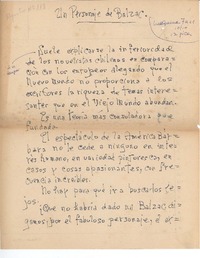 Un Personaje de Balzac.
Suele explicarse la inferiorida_
d de los novelistas chilenos en compara_
ción con los europeos alegando que el
Nuevo Mundo no proporciona a los
escritores la riqueza de temas intere_
santes que en el Viejo Mundo abundan.
Es una teoría más consoladora que
fundada.
El espectáculo de la América bár_
bara no le cede a ninguno en inte_
rés humano, en variedad pintoresca, en
casos y cosas apasionantes, con fre_
cuencia increíbles.
No hay para qué ir a buscarlos le_
jos.
¿Qué no habría dado un Balzac, di_
gamos, por el fabuloso personaje, el